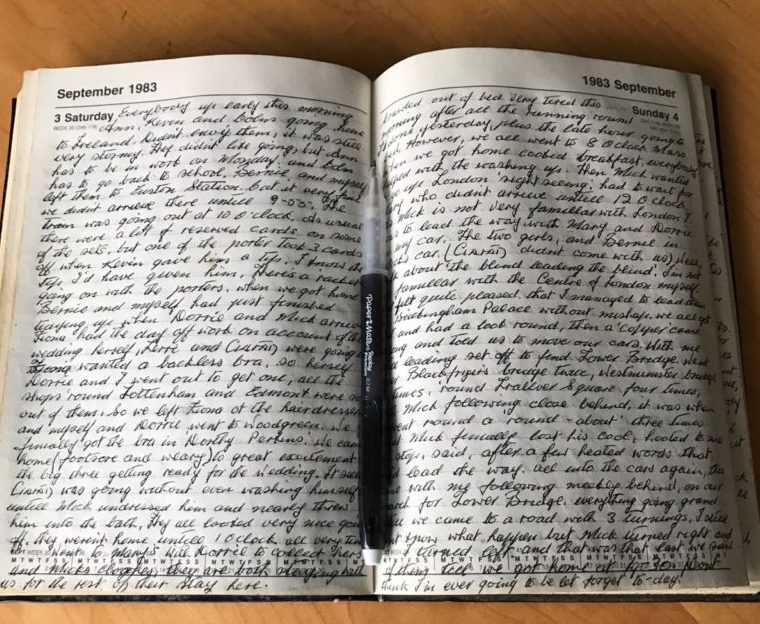 September 1983
3 Saturday Everybody up early this morning
Ann, Kevin and Colin going home
to Ireland. Didn't envy them, it was still
very stormy. They didn't like going, but Ann
has to be in work on Monday, and Colin
has to go back to school, Bernie and myself
left them to Euston Station, but it very
we didn't arrive there untill 9-55. The
train was going out at 10 O'clock. As usual
there were a lot of reserved cards on some
of the sets, but one of the porter took 3 cards
off when Kevin gave him a tip. I know the
tip I'd have given him, there's a racket
going on with the porters. when we got home
Bernie and myself had just finished
up when Dorrie and Mick arrived
Fiona had the day off work on account of the
wedding herself, and were going
Fiona wanted a backless bra, so herself
Dorrie and I went out to get one, all the
shops round Tottenham and Edmonton were
out of them. So we left Fiona at the hairdresser
and myself and Dorrie went to Woodgreen. We
finually got the bra in Dorthy Perkins. We came
home (footsore and weary) to great excitement
the big three getting ready for the wedding. It
was going without even washing himself
untill Mick undressed him and nearly threw
him into the bath. They all looked very nice going
off. they weren't home untill 1 O'clock all very
went to Mary's with Dorrie to collect hers
and Micks clothes, they are both staying with
us for the rest of their stay here.
1983 September
Sunday 4
out of bed very tired this
morning after all the running round
yesterday, plus the late hour going to
However, we all went to 8 O'clock Mass
when we got home cooked breakfast, everybody
with the washing up. Then Mick wanted
London sight seeing, had to wait for
who didn't arrive untill 12 O'clock
Mick is not very familiar with London I
to lead the way with Mary and Dorrie
my car. The two girls, and Bernie in
car. ( didn't come with us)
about the blind leading the blind. I'm not
familiar with the Centre of London myself
felt quite pleased that I managed to lead them
Buckingham Palace without mishap. we all got
and had a look round, then a 'copper' came
and told us to move our cars. With me
leading set off to find Tower Bridge. Went
Blackfryers bridge twice, Westminster bridge
times, round Trallver Square four times,
Mick following close behind, it was when
went round a round-about three times
Mick finually lost his cool, hooted to me
stop, said, after a few heated words that
lead the way. all into the cars again,
with me following meekly behind, on our
for Tower Bridge. everything going grand
we came to a road with 3 turnings, I still
know what happen but Mick turned right and
turned left and that was the last we
of them till we got home at
think I'm ever going to be let forget to-day!
Paper Mate